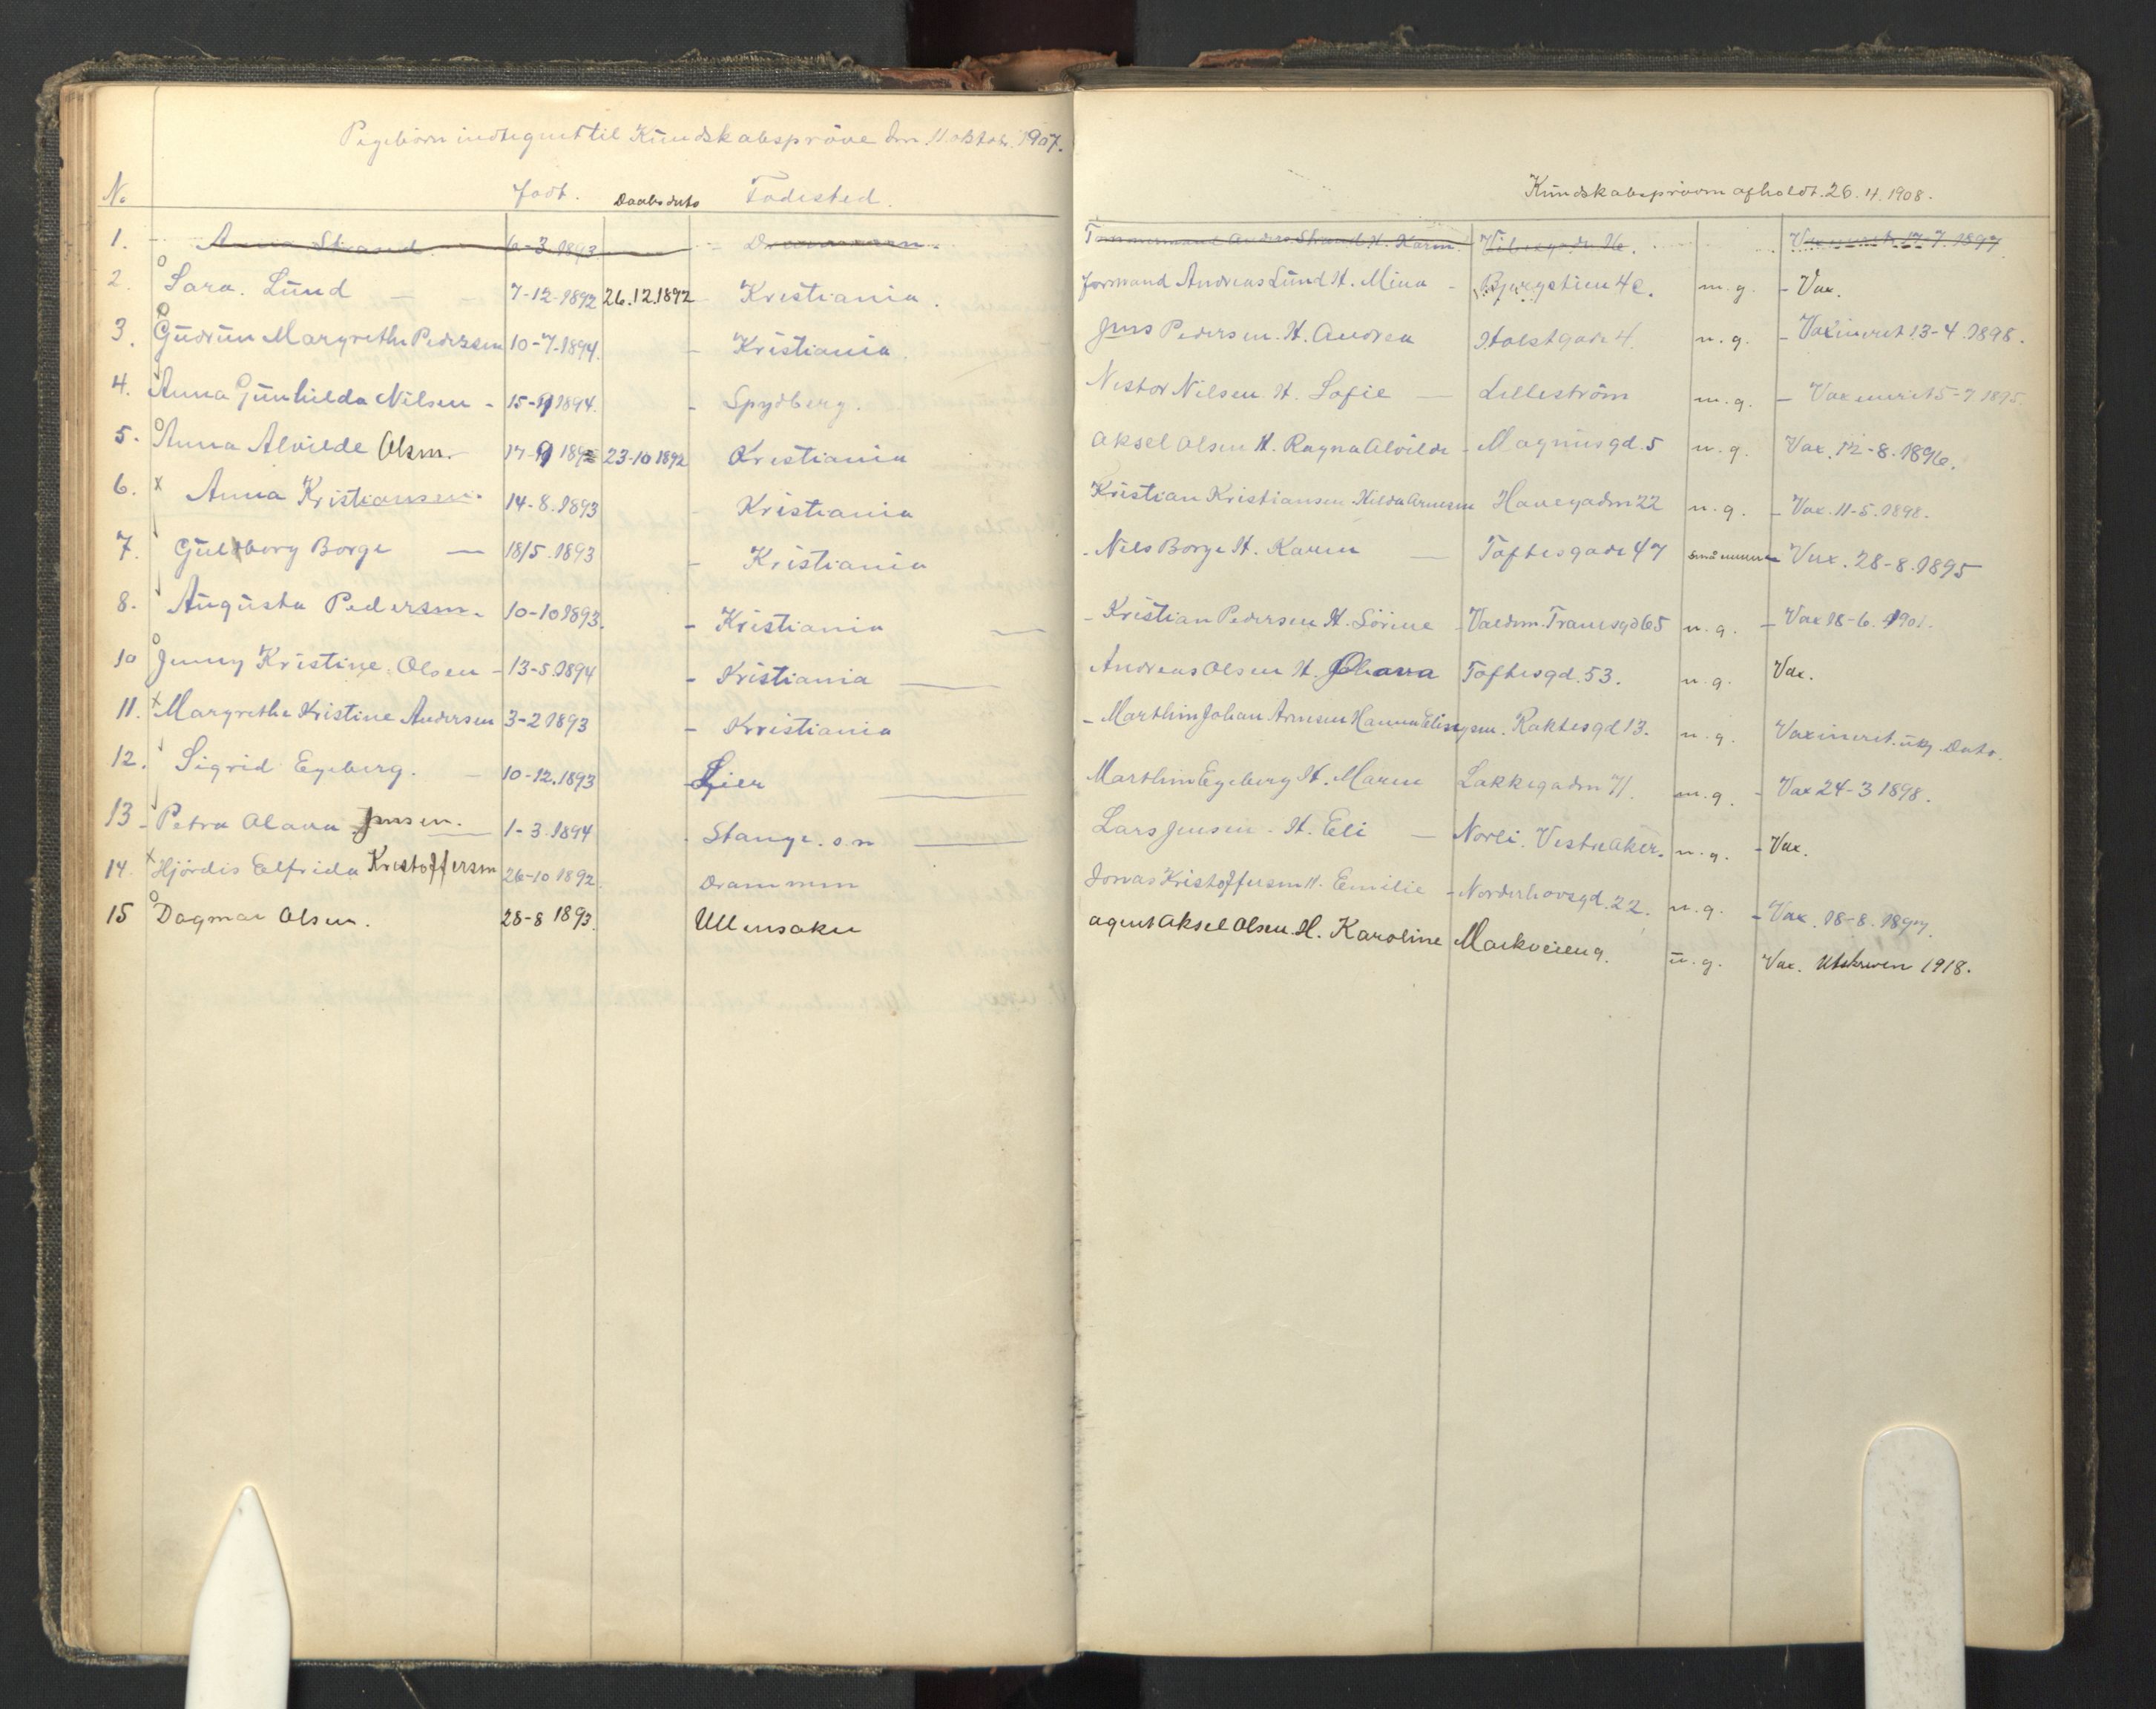 Pigebörn indtegnet til Kundskabspröve den 11 oktobr. 1907.
Kundskabspröven afholdt. 26.4.1908.
No Födt. Daabsdato Födested.
1. Anna Strand 6-3.1893 Drammen. Tömmermand Anders Strand H. Karen. Vibesgade 16. Vaxineret 17-7.1897
2. Sara. Lund 7-12-1892 26.12.1892 Kristiania. Formand Andreas Lund H. Mina - Bjergstien 4c. m.g. - Vax.
3. Gudrun Margrethe Pedersen 10-7-1894. - Kristiania. Jens Pedersen. H. Andrea Holstgade 4. n.g. - Vaxineret 13-4.1898.
4. Anna Gunhilda Nilsen - 15-9 1894. - Spydberg. Nestor Nilsen H. Sofie - Lilleström m.g. - Vaxineret 5-7 1895.
5. Anna Alvilde Olsen. 17-9 1892 23-10 1892 Kristiania Aksel Olsen H. Ragna Alvilde - Magnusgd. 5 n.g. Vax. 12-8.1896.
6. x Anna Kristiansen. 14-8.1893 - Kristiania Kristian Kristiansen Hilda Arnesen Havegaden 22 n.g. - Vax. 11-5.1898.
7. Gulborg Borge - 18/5.1893 - Kristiania - Nils Borge H. Karen - Toftesgade 47 - Vax. 28-8.1895
8. Augusta Pedersen. 10-10 1893. - Kristiania - Kristian Pedersen H. Sörine - Valdem. Tranesgd 65 n.g. - Vax 18-6.1901.
10 Jenny Kristine Olsen - 13-5.1894 - Kristiania - Andreas Olsen H. Johanna Toftesgd. 53. n.g. Vax.
11. x Margrethe Kristine Andersen 3-2 1893 - Kristiania - Marthin Johan Arnesen Hanna Elisa Raktesgd 13. n.g. Vaxineret. Dato.
12. Sigrid Egeberg. - 10-12.1893 - Lier - Marthin Egeberg H. Maren Lakkegaden 71. m.g. - Vax 24-3 1898.
13 - Petra Olava Jensen. 1-3.1894 - Stange. s.n - Lars Jensen - H. Eli - Norli. Vestre Aker. n.g. - Vax.
14. x Hjördis Elfrida Kristoffersen 26-10 1892. Drammen Jonas Kristoffersen H. Emilie - Norderhovsgd. 22. n.g. - Vax. 18-8.1897.
15 Dagmar Olsen. 28-8 1893. Ullensaker agent Aksel Olsen. H. Karoline Markveien 9. n.g. Vax. Utskreven 1918.